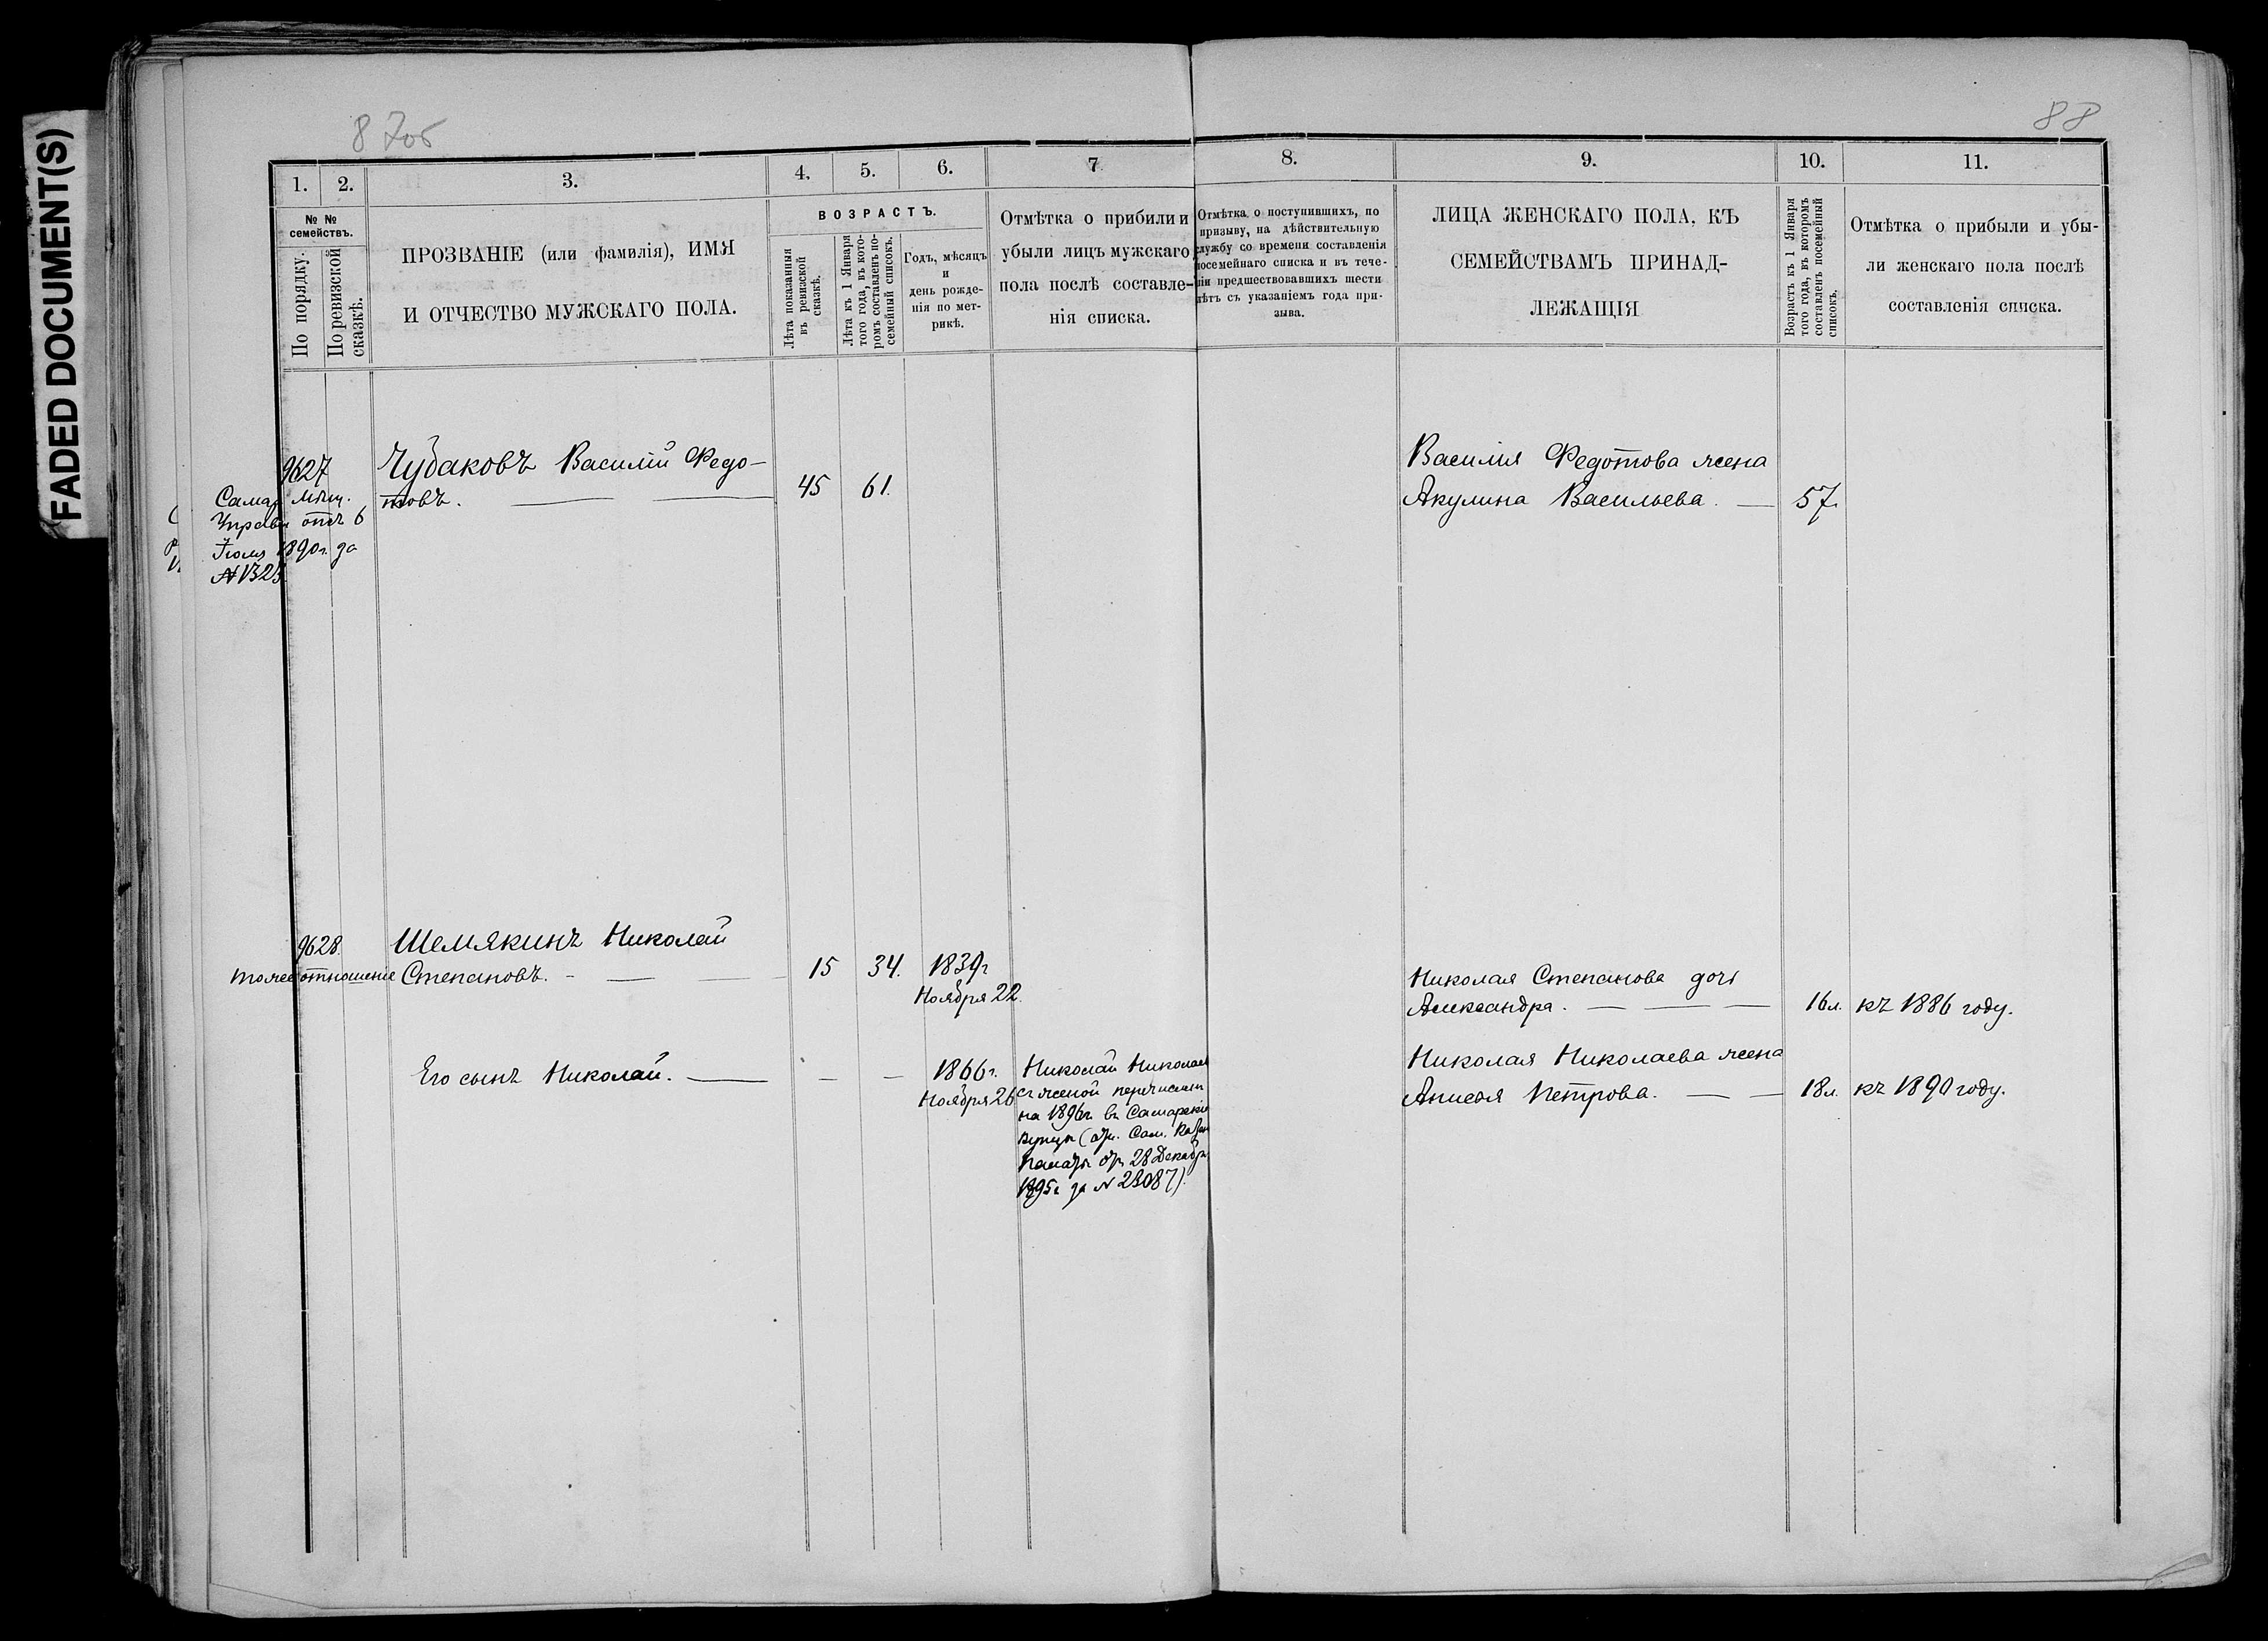 FADED DOCUMENT(S)
88
1.
2.
3.
4.
5.
6.
7
8.
9.
10.
11.
№ №
семействъ.
По порядку.
По ревизской
сказкѣ.
ПРОЗВАНІЕ (или фамилія), ИМЯ
И ОТЧЕСТВО МУЖСКАГО ПОЛА.
ВОЗРАСТЪ.
Лѣта показанныя
въ ревизской
сказкѣ.
Лѣта къ 1 Января
того года, въ кото-
ромъ составленъ по-
семейный списокъ.
Годъ, мѣсяцъ
и
день рожде-
нія по мет-
рикѣ.
Отмѣтка о прибыли и
убыли лицъ мужскаго
пола послѣ составле-
нія списка.
Отмѣтка о поступившихъ, по
призыву, на дѣйствительную
службу со времени составленія
посемейнаго списка и въ тече-
ніи предшествовавшихъ шести
лѣтъ съ указаніемъ года при-
зыва.
ЛИЦА ЖЕНСКАГО ПОЛА, КЪ
СЕМЕЙСТВАМЪ ПРИНАД-
ЛЕЖАЩІЯ
Возрастъ къ 1 Января
того года, въ которомъ
составленъ посемейный
списокъ.
Отмѣтка о прибыли и убы-
ли женскаго пола послѣ
составленія списка.
9627
Самар. Мѣщ.
Управы отъ 6
Іюля 1890г. за
№ 1323
Чубаковъ Василій Федо-
товъ.
45
61.
Василія Федотова жена
Акулина Васильева. —
57.
9628.
тоже отношеніе
Шемякинъ Николай
Степановъ. - — —
15
34.
1839г
Ноября 22.
Николая Степанова дочь
Александра. — — —
16л.
къ 1886 году.
Его сынъ Николай. —
—
—
1866г.
Ноября 26
Николай Николаев
съ женой перечислен
на 1896г. въ Самарскіе
купцы (от. Сам. Казен
Палаты отъ 28 Декабр
1895г за № 23087).
Николая Николаева жена
Анисья Петрова. — —
18л.
къ 1890 году.